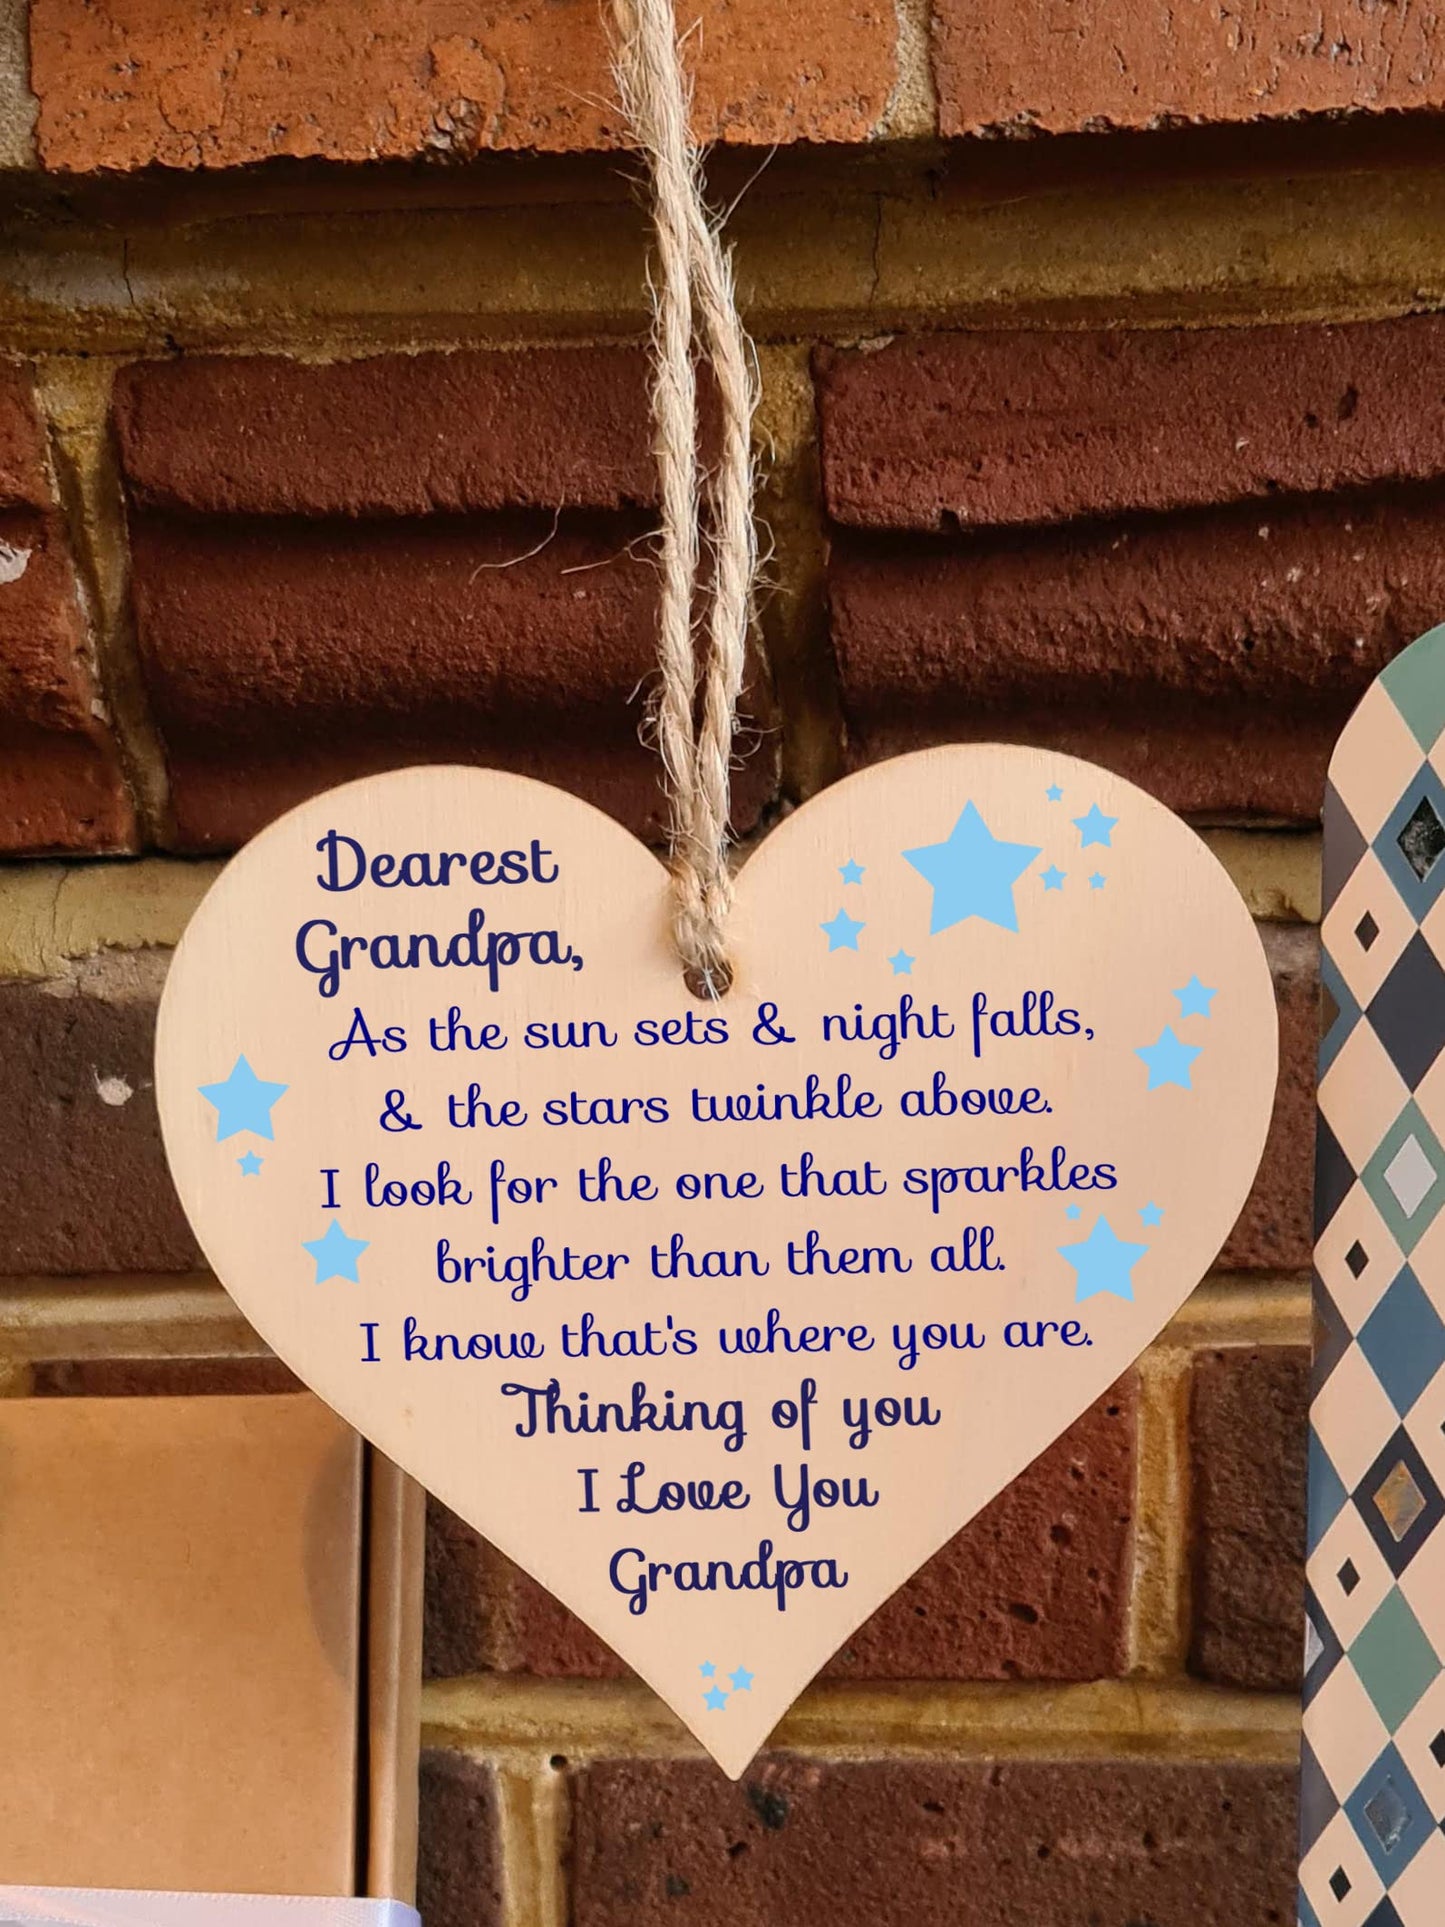 Dearest
Grandpa,
As the sun sets & night falls,
& the stars twinkle above.
I look for the one that sparkles
brighter than them all.
I know that's where you are.
Thinking of you
I Love You
Grandpa